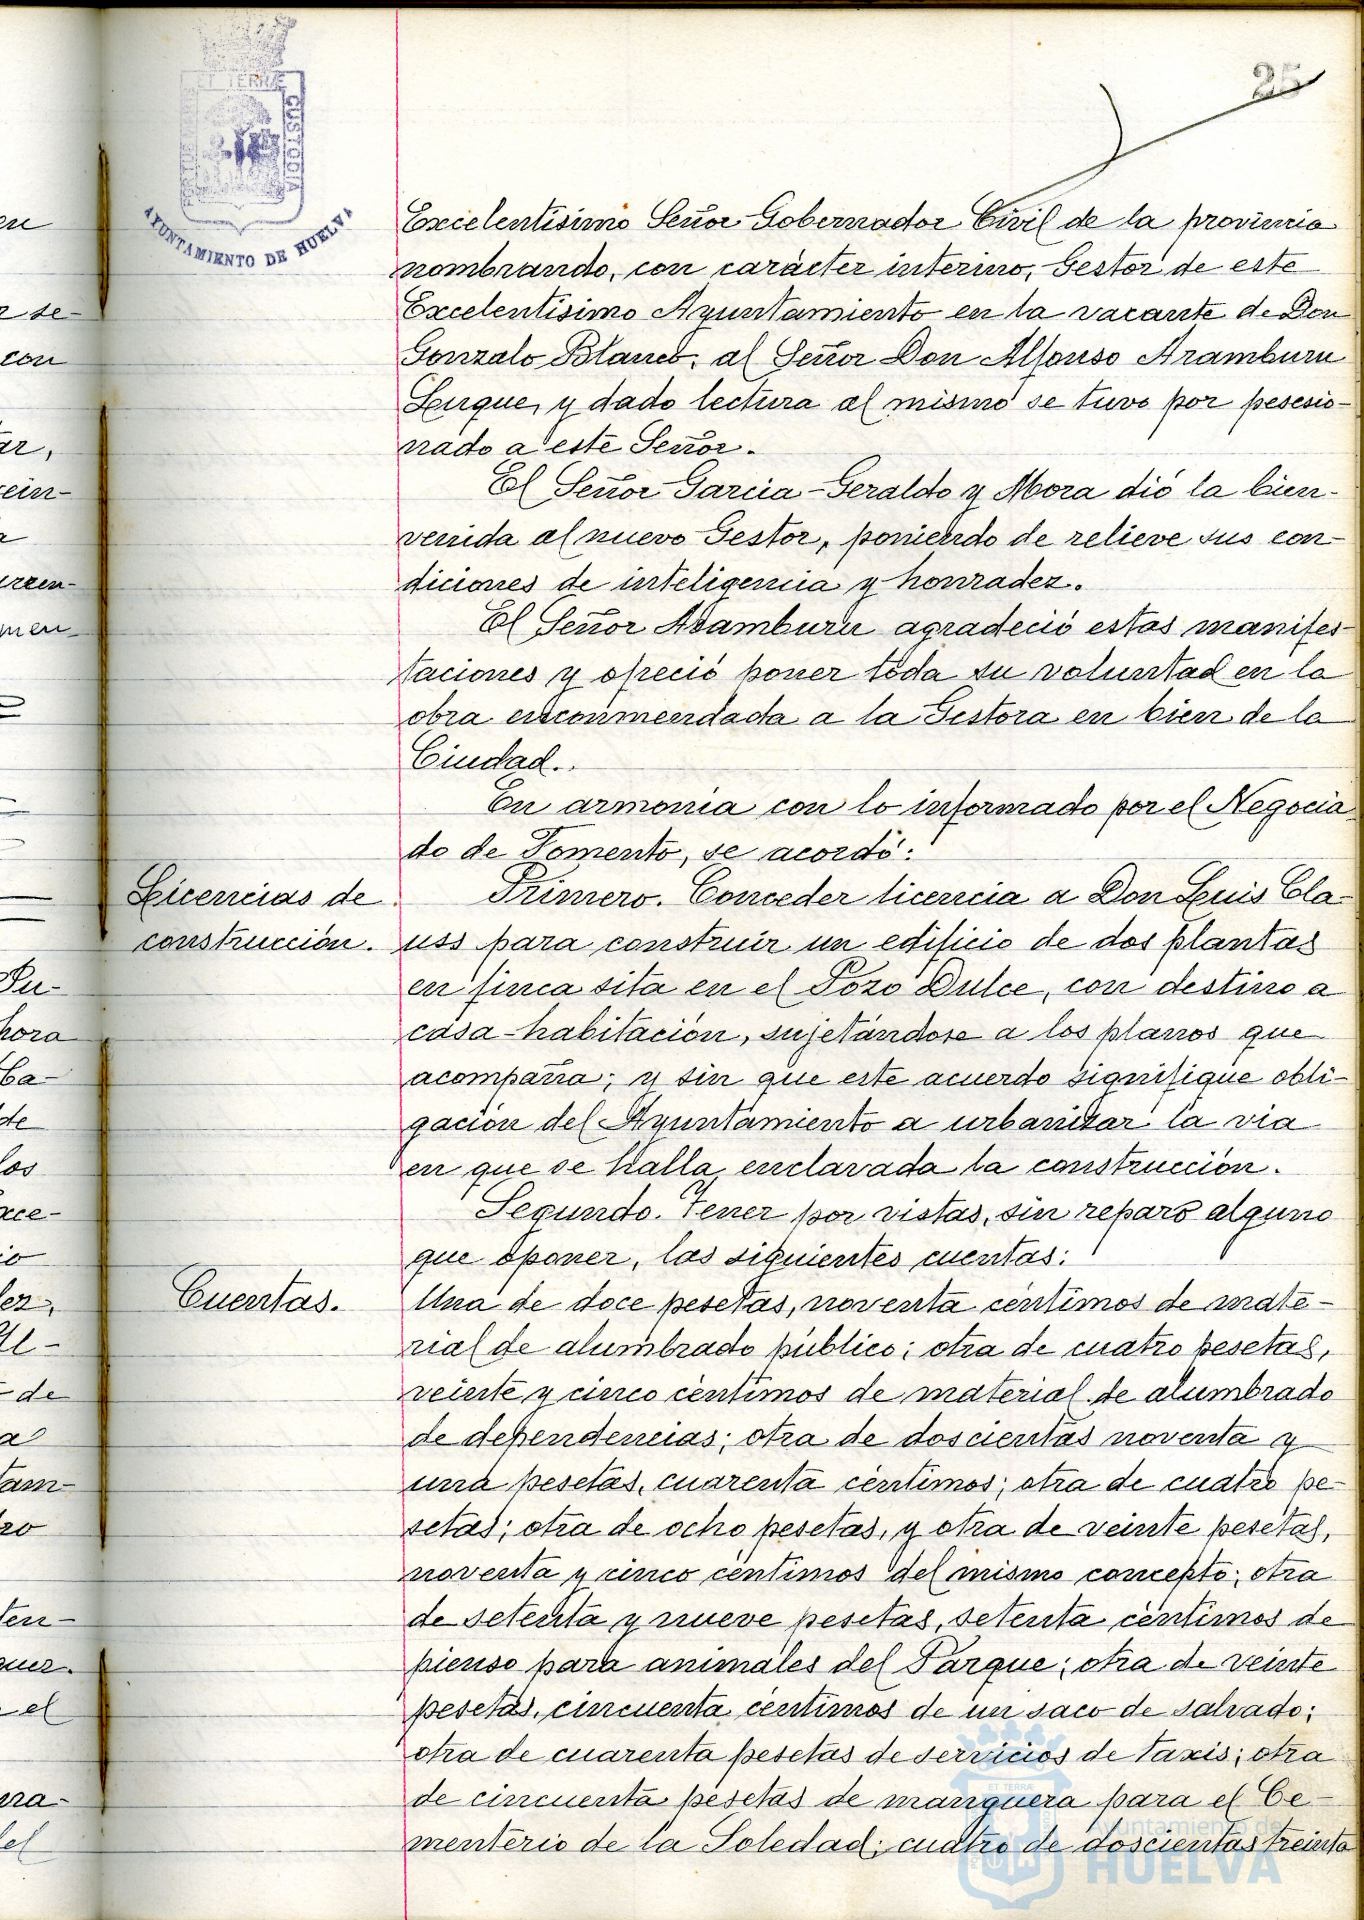 25
ET TERRÆ
PORTUS MARIS
CUSTODIA
AYUNTAMIENTO DE HUELVA
Excelentisimo Señor Gobernador Civil de la provincia
nombrando, con carácter interino, Gestor de este
Excelentisimo Ayuntamiento en la vacante de Don
Gonzalo Blanco, al Señor Don Alfonso Aramburu
Luque, y dado lectura al mismo se tuvo por pesesio-
nado a este Señor.
El Señor Garcia-Geraldo y Mora dió la bien-
venida al nuevo Gestor, poniendo de relieve sus con-
diciones de inteligencia y honradez.
El Señor Aramburu agradeció estas manifes-
taciones y ofreció poner toda su voluntad en la
obra encommendada a la Gestora en bien de la
Ciudad.
En armonia con lo informado por el Negocia
do de Fomento, se acordó:
Licencias de
construcción.
Primero. Conceder licencia a Don Luis Cla-
uss para construir un edificio de dos plantas
en finca sita en el Pozo Dulce, con destino a
casa-habitación, sujetándose a los planos que
acompaña; y sin que este acuerdo signifique obli-
gación del Ayuntamiento a urbanizar la via
en que se halla enclavada la construcción.
Segundo. Tener por vistas, sin reparo alguno
que oponer, las siguientes cuentas:
Cuentas.
Una de doce pesetas, noventa céntimos de mate-
rial de alumbrado público; otra de cuatro pesetas,
veinte y cinco céntimos de material de alumbrado
de dependencias; otra de doscientas noventa y
una pesetas, cuarenta céntimos; otra de cuatro pe-
setas; otra de ocho pesetas, y otra de veinte pesetas,
noventa y cinco céntimos del mismo concepto; otra
de setenta y nueve pesetas, setenta céntimos de
pienso para animales del Parque; otra de veinte
pesetas, cincuenta céntimos de un saco de salvado;
otra de cuarenta pesetas de servicios de taxis; otra
de cincuenta pesetas de manguera para el Ce-
menterio de la Soledad; cuatro de doscientas treinta
Ayuntamiento de
HUELVA